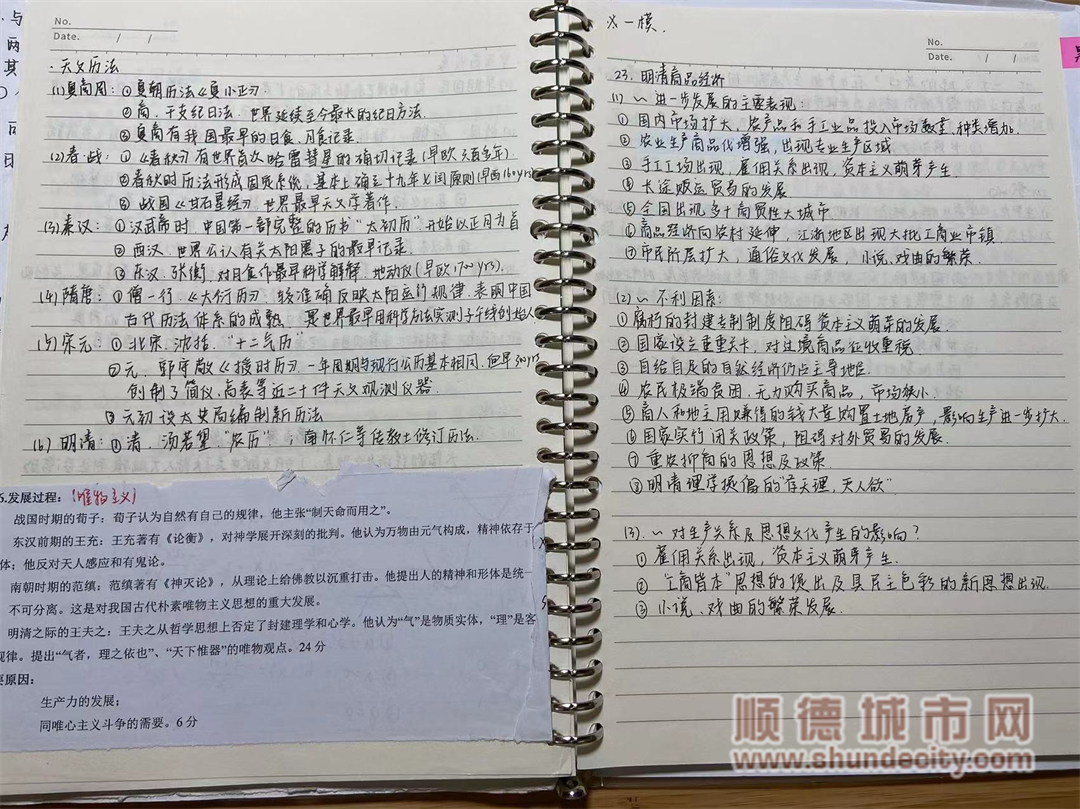 No.
Date. / /
·天文历法
(1)夏商周：①夏朝历法《夏小正》
②商，干支纪日法，世界延续至今最长的纪日方法.
③夏商有我国最早的日食、月食记录.
(2)春·战：①《春秋》有世界首次哈雷彗星的确切记录(早欧六百多年).
②春秋时历法形成固定系统，基本上确立十九年七闰原则(早西160yrs)
③战国《甘石星经》世界最早天文学著作.
(3)秦汉：①汉武帝时，中国第一部完整的历书"太初历"开始以正月为首
②西汉，世界公认有关太阳黑子的最早记录.
③东汉，张衡，对月食作最早科学解释，地动仪(早欧1700yrs).
(4)隋唐：①僧一行，《大衍历》，较准确反映太阳运行规律，表明中国
古代历法体系的成熟，是世界最早用科学方法实测子午线创始人
(5)宋元：①北宋，沈括，"十二气历"
②元，郭守敬《授时历》一年周期与现行公历基本相同，但早300yrs
创制了简仪、高表等近二十件天文观测仪器
③元初设太史局编制新历法
(6)明清：①清，汤若望"农历"；南怀仁等传教士修订历法.
6.发展过程：(唯物主义)
战国时期的荀子：荀子认为自然有自己的规律，他主张"制天命而用之"。
东汉前期的王充：王充著有《论衡》，对神学展开深刻的批判。他认为万物由元气构成，精神依存于
体；他反对天人感应和有鬼论。
南朝时期的范缜：范缜著有《神灭论》，从理论上给佛教以沉重打击。他提出人的精神和形体是统一
不可分离。这是对我国古代朴素唯物主义思想的重大发展。
明清之际的王夫之：王夫之从哲学思想上否定了封建理学和心学。他认为"气"是物质实体，"理"是客
规律。提出"气者，理之依也"、"天下惟器"的唯物观点。24分
要原因：
生产力的发展；
同唯心主义斗争的需要。6分
※一模.
No.
Date. / /
23. 明清商品经济
(1) ～进一步发展的主要表现：
①国内市场扩大，农产品和手工业品投入市场数量、种类增加.
②农业生产商品化增强，出现专业生产区域
③手工工场出现，雇佣关系出现，资本主义萌芽产生.
④长途贩运贸易的发展
⑤全国出现多个商贸性大城市
⑥商品经济向农村延伸，江浙地区出现大批工商业市镇
⑦市民阶层扩大，通俗文化发展，小说、戏曲的繁荣.
(2) ～不利因素：
①腐朽的封建专制制度阻碍资本主义萌芽的发展.
②国家设立重重关卡，对过境商品征收重税.
③自给自足的自然经济仍占主导地位
④农民极端贫困，无力购买商品，市场狭小.
⑤商人和地主用赚得的钱大量购置土地房产，影响生产进一步扩大.
⑥国家实行闭关政策，阻碍对外贸易的发展.
⑦重农抑商的思想及政策
⑧明清理学提倡的"存天理，灭人欲"
(3) ～对生产关系及思想文化产生的影响？
①雇佣关系出现，资本主义萌芽产生.
②"工商皆本"思想的提出及具民主色彩的新思想出现.
③小说、戏曲的繁荣发展.
顺德城市网
www.shundecity.com